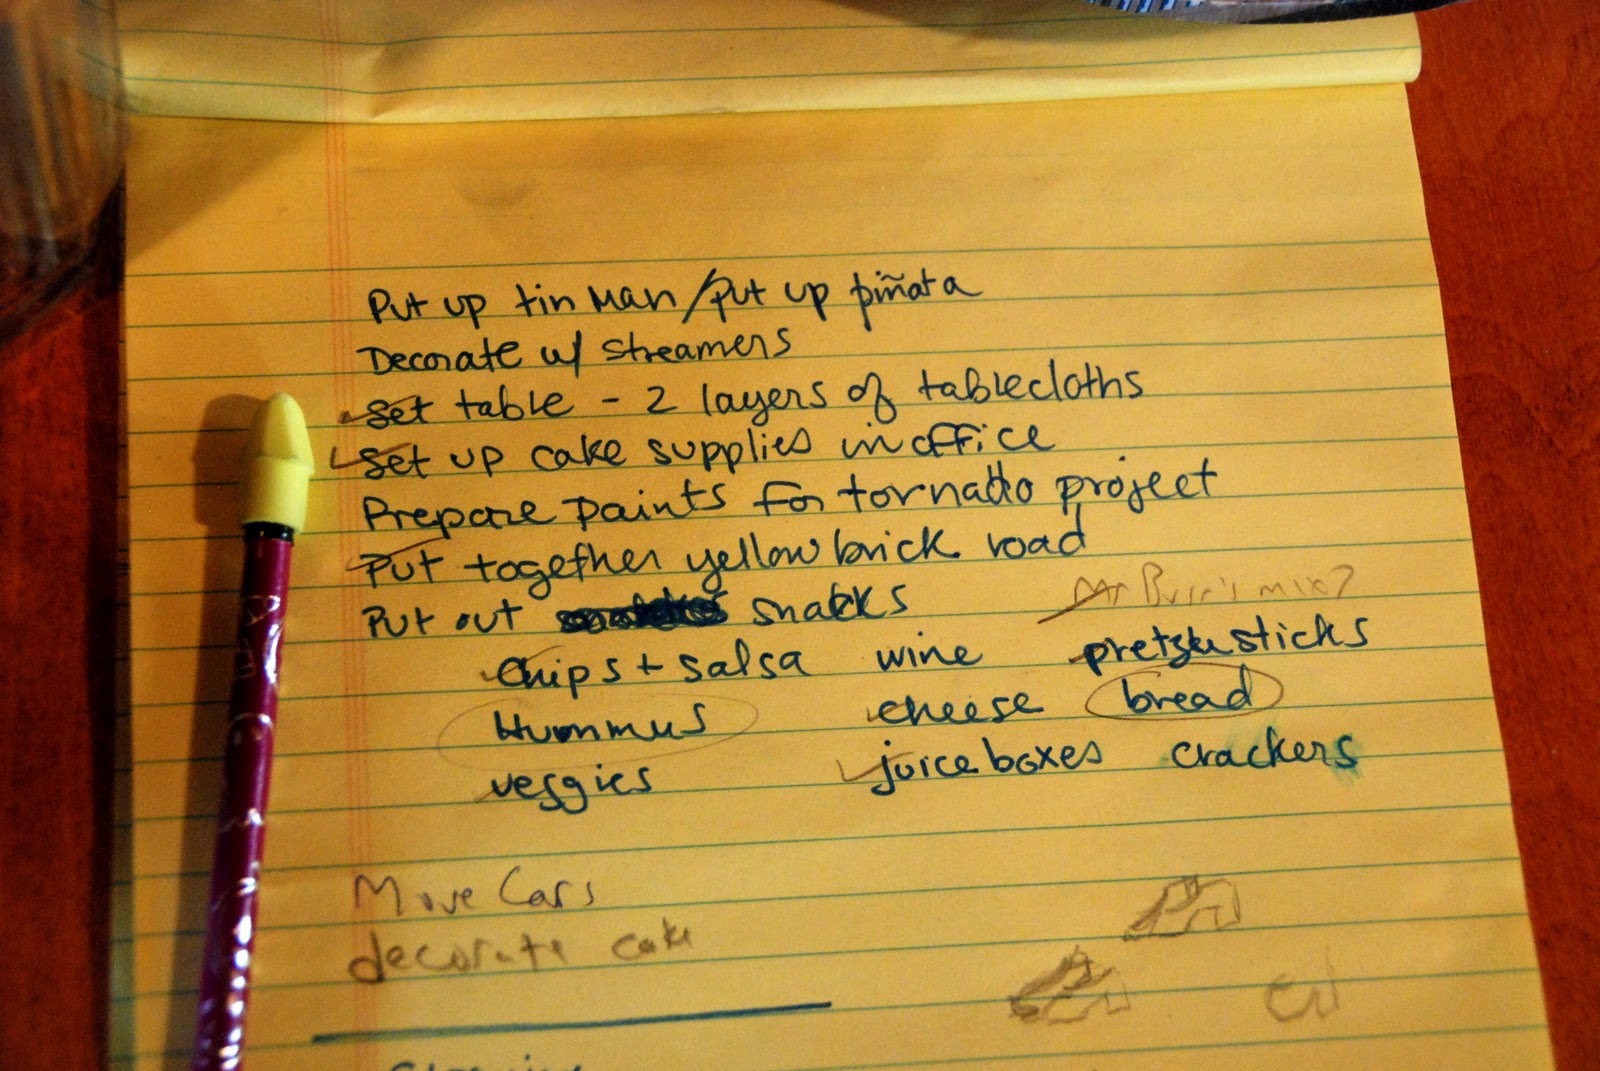 Put up tin Man/put up piñata
Decorate w/ streamers
Set table - 2 layers of tablecloths
Set up cake supplies in office
Prepare paints for tornado project
Put together yellow brick road
Put out snacks
Mr mix?
Chips + salsa wine pretzel sticks
Hummus cheese bread
veggies juice boxes crackers
Move Cars
decorate cake